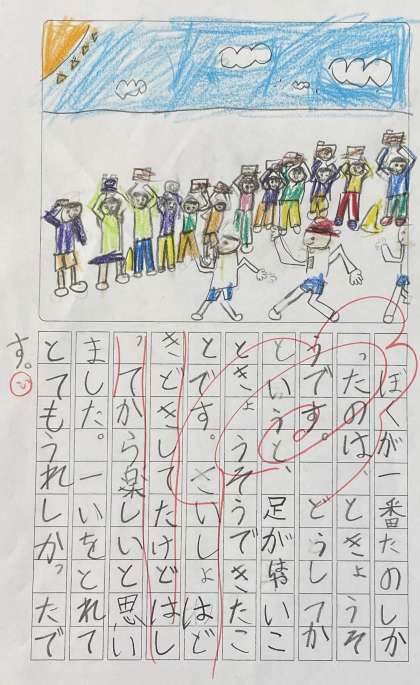 ぼくが一番たのしか
ったのは、ときょうそ
うです。どうしてか
というと、足が速いこ
ときょうそうできたこ
とです。さいしょはど
きどきしてたけどはし
ってから楽しいと思い
ました。一いをとれて
とてもうれしかったで
す。